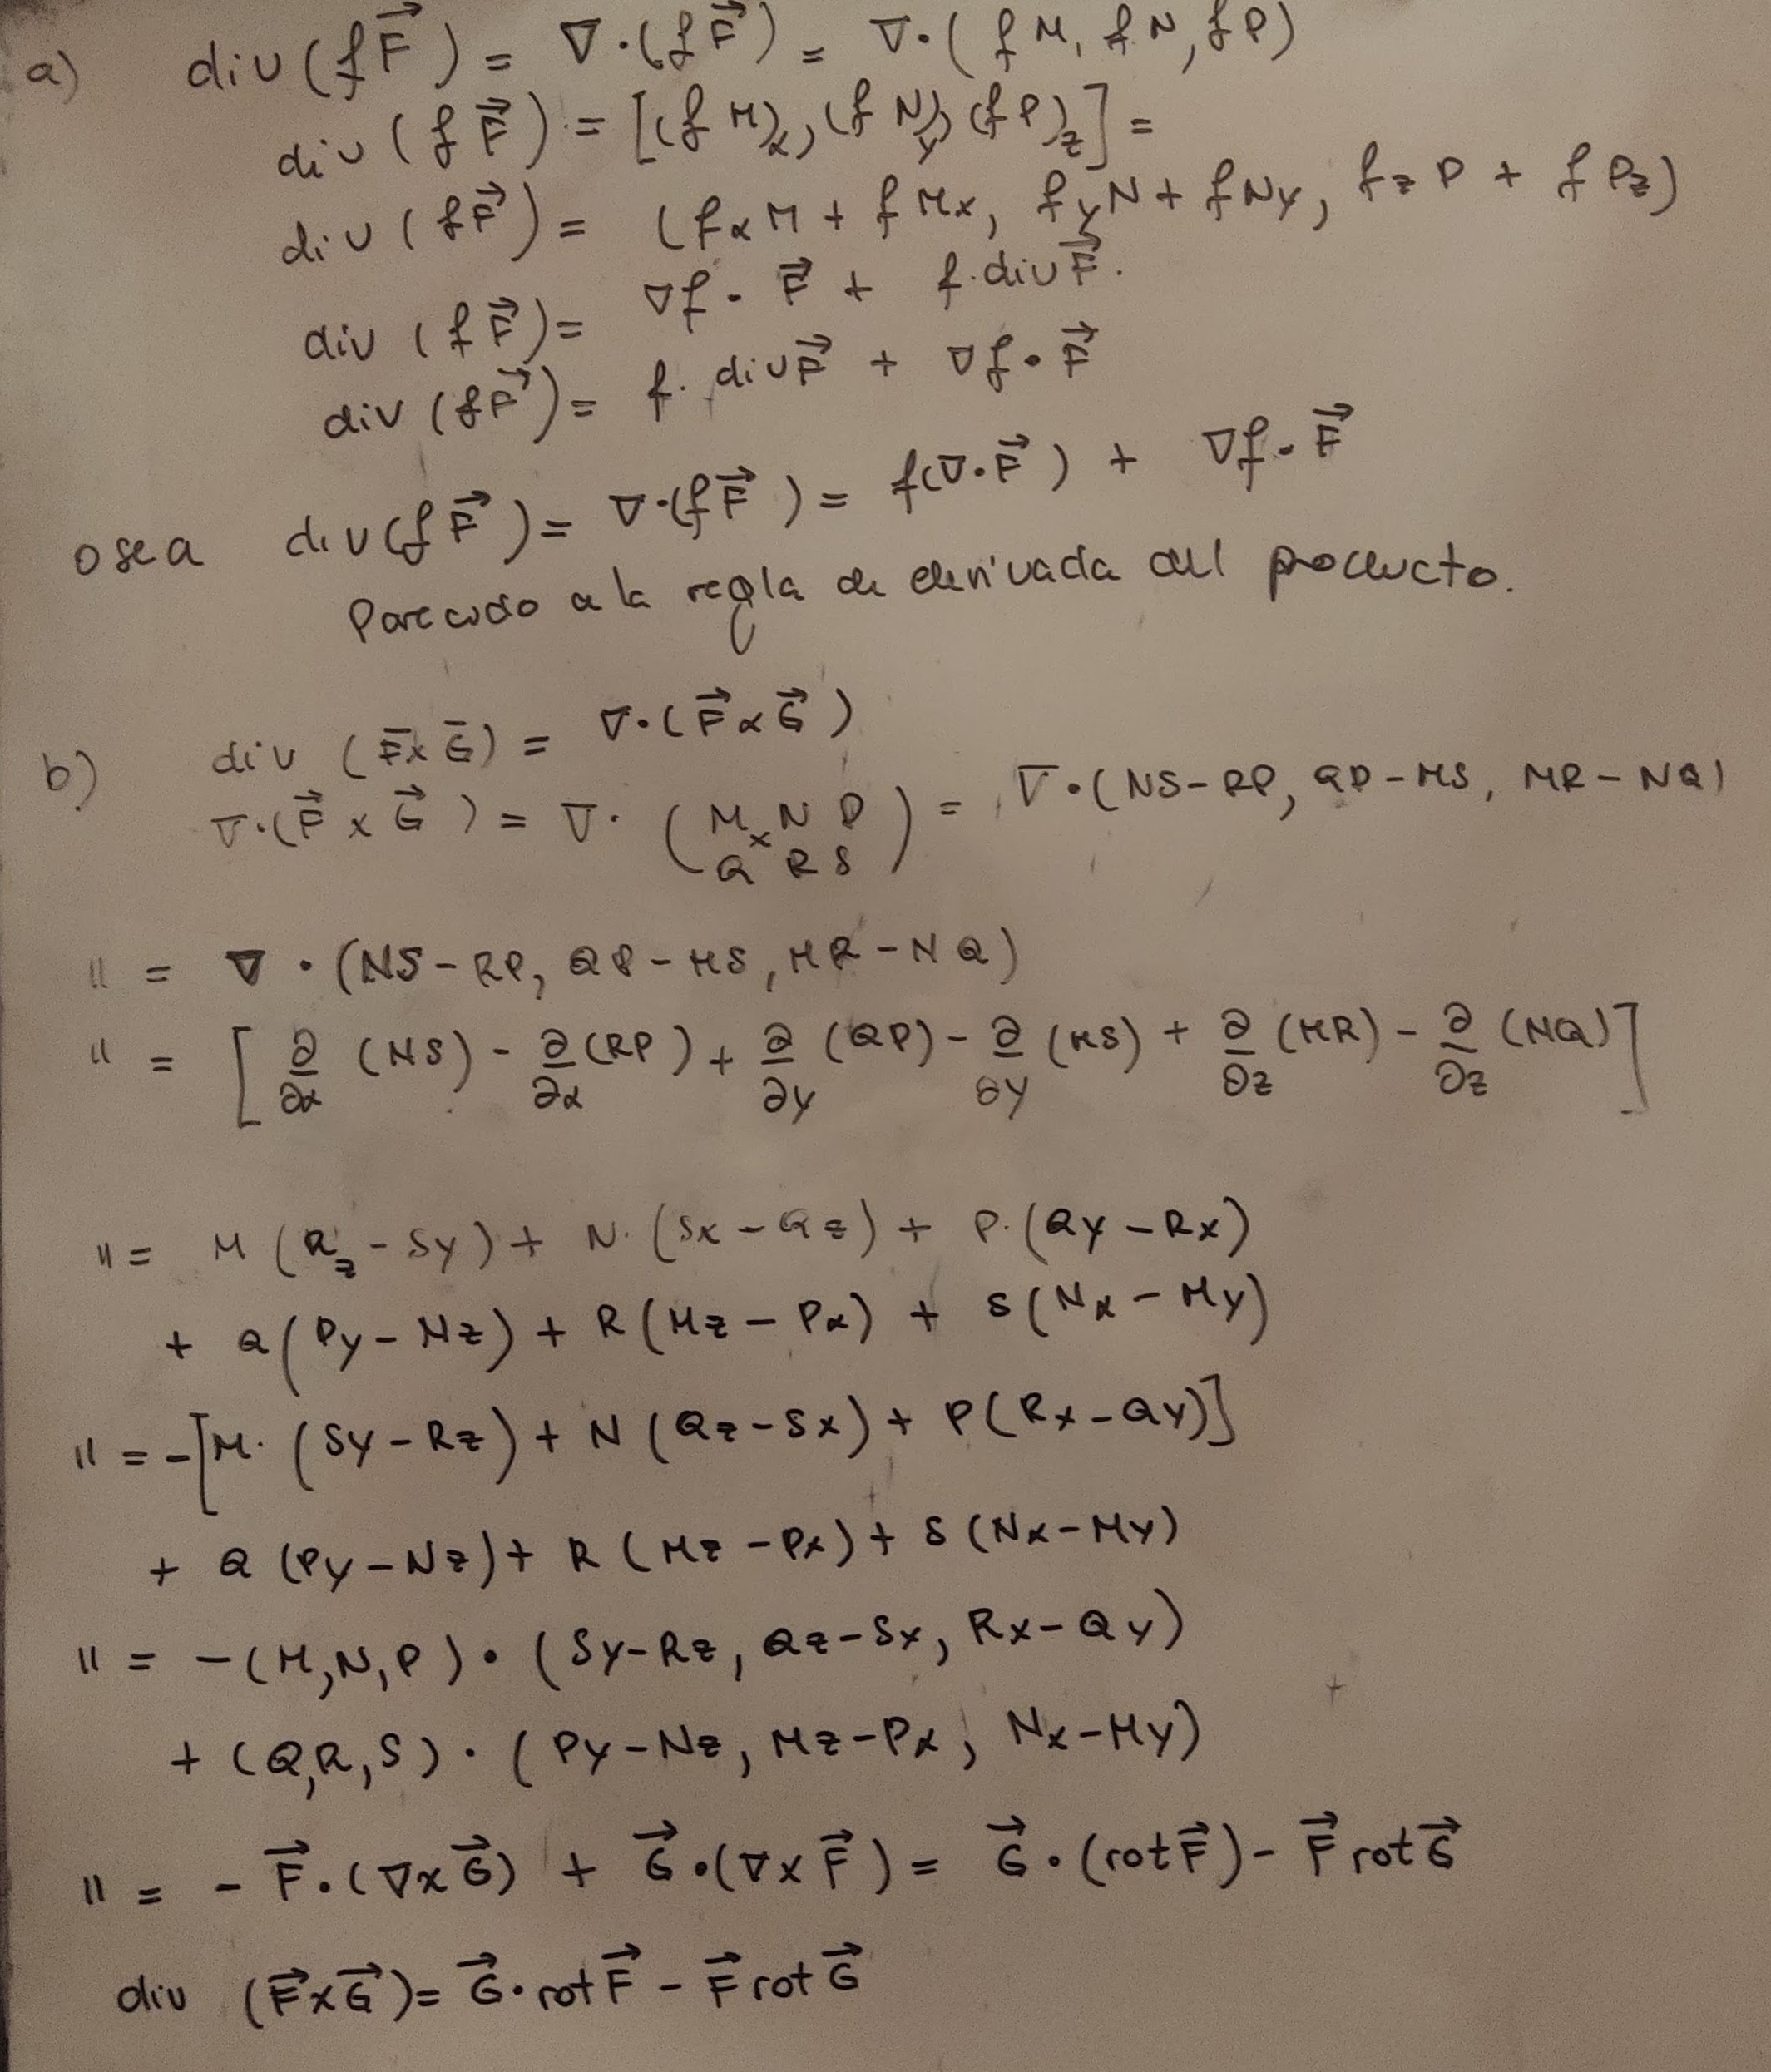 a) div (f F⃗) = ∇·(f F⃗) = ∇·( f M, f N, f P)
div (f F⃗) = [(f M)x, (f N)y, (f P)z] =
div (f F⃗) = (fx M + f Mx, fy N + f Ny, fz P + f Pz)
div (f F⃗) = ∇f · F⃗ + f · div F⃗.
div (f F⃗) = f · div F⃗ + ∇f · F⃗
osea div (f F⃗) = ∇·(f F⃗) = f(∇·F⃗) + ∇f · F⃗
Parecido a la regla de derivada del producto.
b) div (F̄ x Ḡ) = ∇·(F⃗ x G⃗)
∇·(F⃗ x G⃗) = ∇· (M N P x Q R S) = ∇·(NS-RP, QP-MS, MR-NQ)
" = ∇ · (NS-RP, QP-MS, MR-NQ)
" = [∂/∂x (NS) - ∂/∂x (RP) + ∂/∂y (QP) - ∂/∂y (MS) + ∂/∂z (MR) - ∂/∂z (NQ)]
" = M (Rz - Sy) + N · (Sx - Qz) + P · (Qy - Rx)
+ Q (Py - Nz) + R (Mz - Px) + S (Nx - My)
" = -[M · (Sy - Rz) + N (Qz - Sx) + P (Rx - Qy)]
+ Q (Py - Nz) + R (Mz - Px) + S (Nx - My)
" = -(M, N, P) · (Sy - Rz, Qz - Sx, Rx - Qy)
+ (Q, R, S) · (Py - Nz, Mz - Px, Nx - My)
" = - F⃗ · (∇ x G⃗) + G⃗ · (∇ x F⃗) = G⃗ · (rot F⃗) - F⃗ rot G⃗
div (F⃗ x G⃗) = G⃗ · rot F⃗ - F⃗ rot G⃗